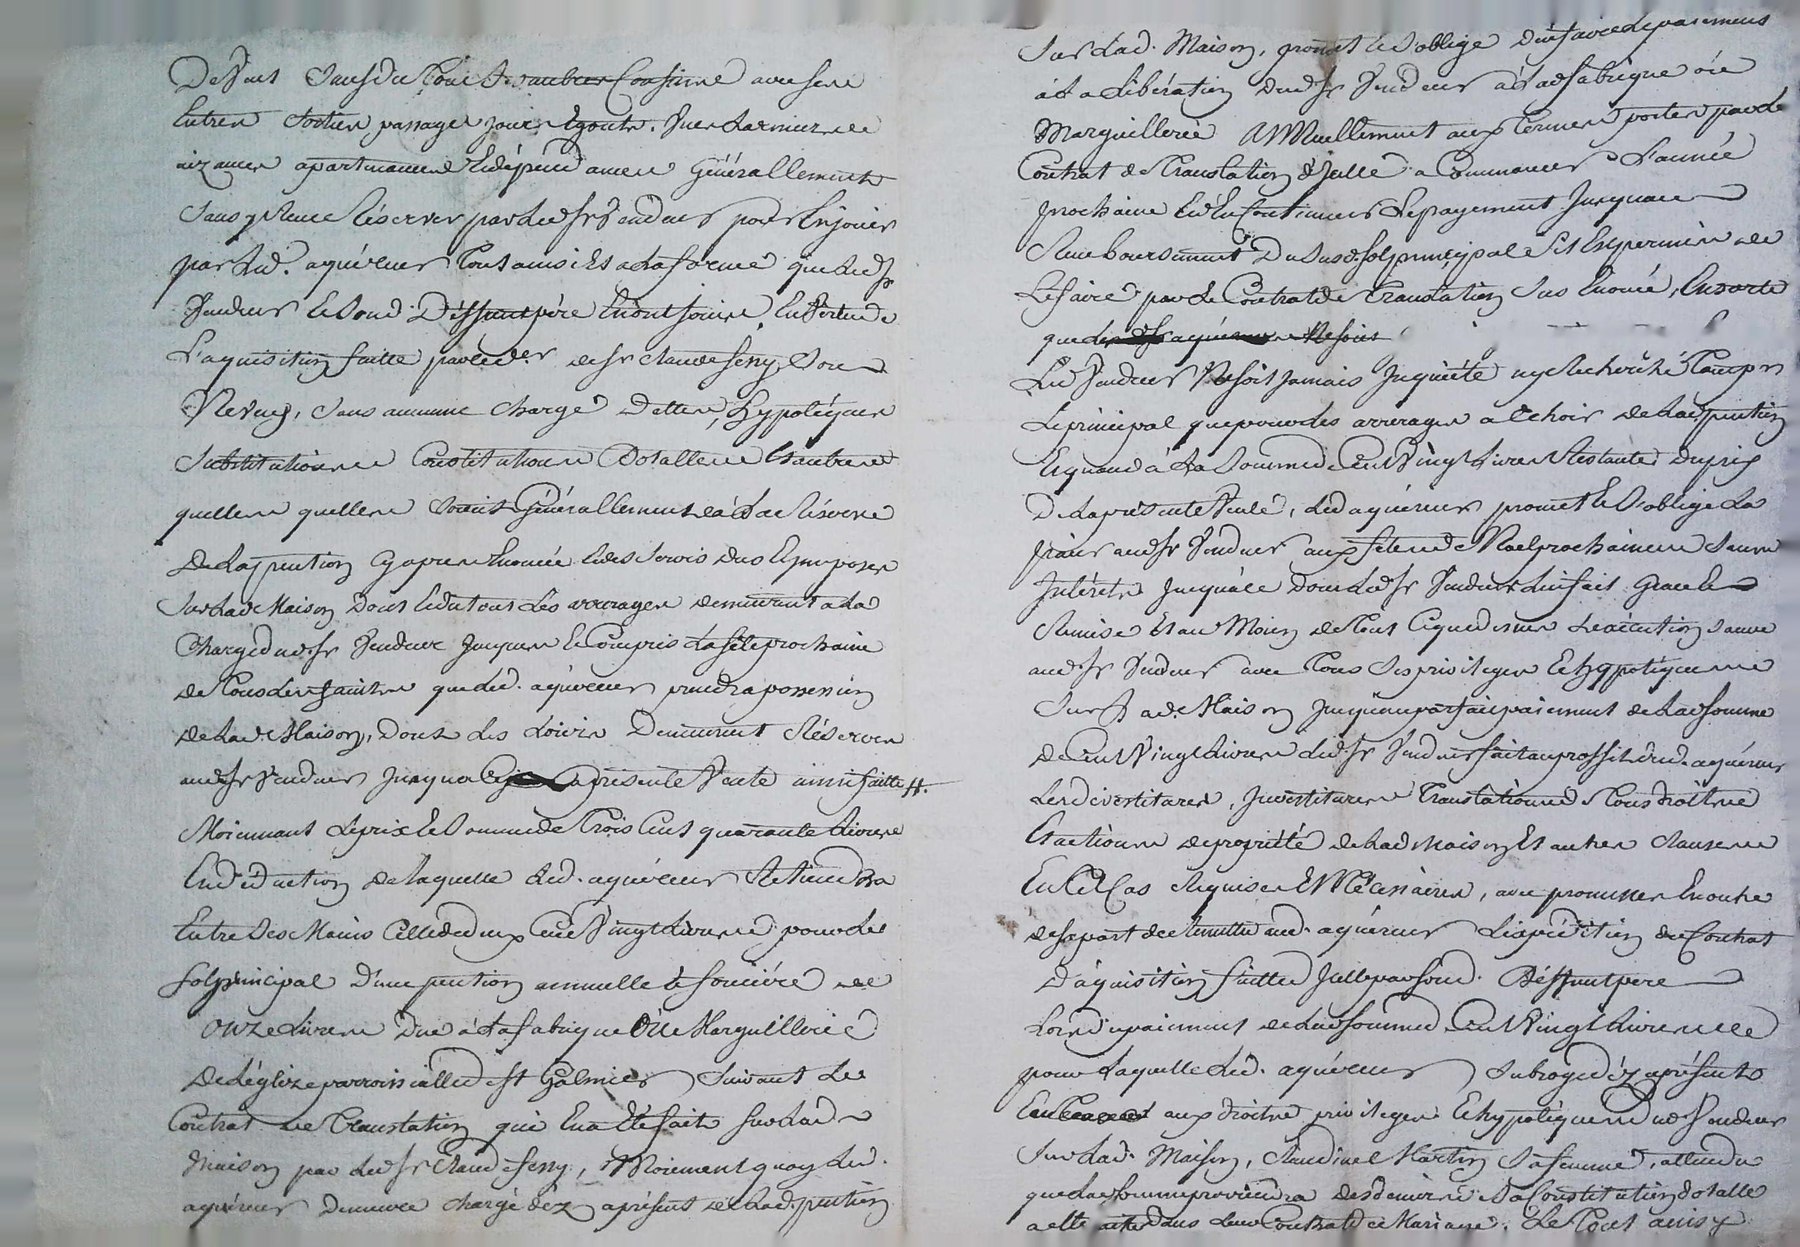 De Vent Sauf du Tout avec ses
Entrées Sorties passages jours Egouts. Vues Larmiers
aizances apartenances Endépend ances Généralllement
Sans y Rien Réserver par Led. Sr Vendeur pour En jouir
par Led. aquéreur Tout ainsi Et a la forme que Led. Sr
Vendeur Et Sond. Déffunt père En ont jouis, En Vertu de
L'aquisition faitte par ce der de Sr Claude feny, Son
Neveu, Sans aucune charge Dettes, hypotéques
Substitutions Constitutions Dotalles Et autres
quelles quelles Soient Généralllement, à La Réserve
De La pention cy apres Enoncée Et des Servis dus Et imposes
Sur Lad. Maison Dont Et du tout Les arrerages demeurent a La
Charge dud. Sr Vendeur jusques Et Compris La fête prochaine
de Tous Les Saints que Led. aquéreur prendra possession
de Lad. Maison, Dont Les Loiers Demeurent Réservés
aud. Sr Vendeur jusqua La présente Vente ainsi faitte //.
Moienant Le prix Et Somme de Trois Cent quarante Livres
En déduction de laquelle Led. aquéreur Retiendra
Entre Ses Mains Celle de deux Cent Vingt Livres pour Le
Sol principal D'une pention annuelle Et fonciére de
onze Livres Due à La fabrique Ou Marguillerie
De L'église parroissialle de St Galmier, Suivant Le
Contrat de Translation qui En a Eté fait Sur Lad.
Maison par Led. Sr Claude feny, Moienent quoy Led.
aquéreur Demeure chargé déz a présent de Lad. pention
Sur Lad. Maison, promet Et S'oblige D'en faire Le paiement
à La Libération Dud. Sr Vendeur à Lad. fabrique ou
Marguillerie Annuellement aux Termes portes par Le
Contrat de Translation D'jcelle a Commancer L'année
prochaine Et En Continuer Le payement Jusqu'au
Remboursement Du Susd. Sol principal S'il Est permis de
Le faire par Le Contrat de Translation Sus Enoncé, Ensorte
que
Led. Vendeur Ne Soit Jamais Inquiété ny Recherché Tant pr
Le principal que pour Les arrerages a Echoir de Lad. pention
Et quand à La Somme de Cent Vingt Livres Restante du prix
De La présente Vente, Led. aquéreur promet Et S'oblige La
paier aud. Sr Vendeur aux fêtes de Noel prochaines Sans
Intérêts Jusqu'à ce Dont Led. Sr Vendeur Lui fait Grace Et
Remise Et au Moien de Tout Ce que dessus
aud. Sr Vendeur avec Tous Ses privileges Et hypotéques
Sur Lad. Maison Jusqu'au parfait paiement de Lad. Somme
de Cent Vingt Livres Led. Sr Vendeur fait au proffit dud. aquéreur
Les divestitures, Investitures Translations de Tous droits
Et actions de propriété de Lad. Maison Et autres Clauses
En Tel Cas Requises Et Nécessaires, avec promesses En outre
de sa part de Remettre aud. aquéreur L'expédition du Contrat
D'aquisition faitte D'jcelle par Sond. Déffunt pere
Lors du paiement de Lad. Somme de Cent Vingt Livres
pour Laquelle Led. aquéreur Subroge déz a présent
aux droits privileges Et hypotéques dud. Vendeur
Sur Lad. Maison, Claudine Martin Sa femme, attendu
que Lad. Somme proviendra des deniers de Sa Constitution dotalle
a elle dans Leur Contrat de Mariage. Le Tout ainsy